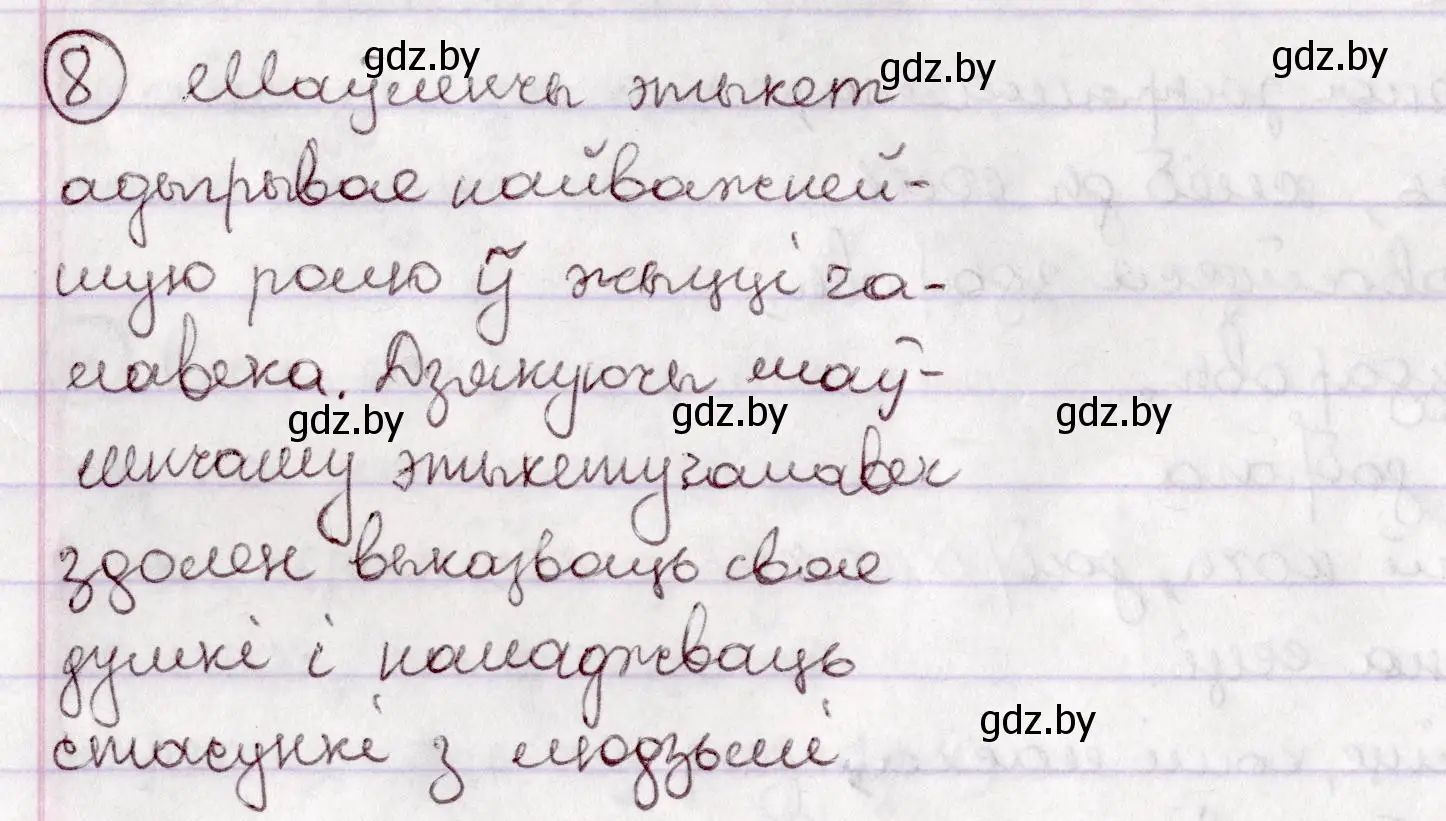 8 Маўленчы этыкет
gdz.by gdz.by gdz.by
адыгрывае найважней-
шую ролю ў жыцці ча-
лавека. Дзякуючы маў-
gdz.by gdz.by gdz.by
ленчаму этыкету чалавек
здолен выказваць свае
думкі і наладжваць
стасункі з людзьмі.
gdz.by